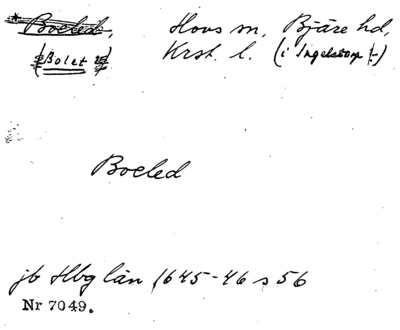 *Boeled, Hovs sn, Bjäre hd,
(Bolet) Krst. l. (i Ingelstorp)
Boeled
jb Hbg län 1645-46 s 56
Nr 7049.